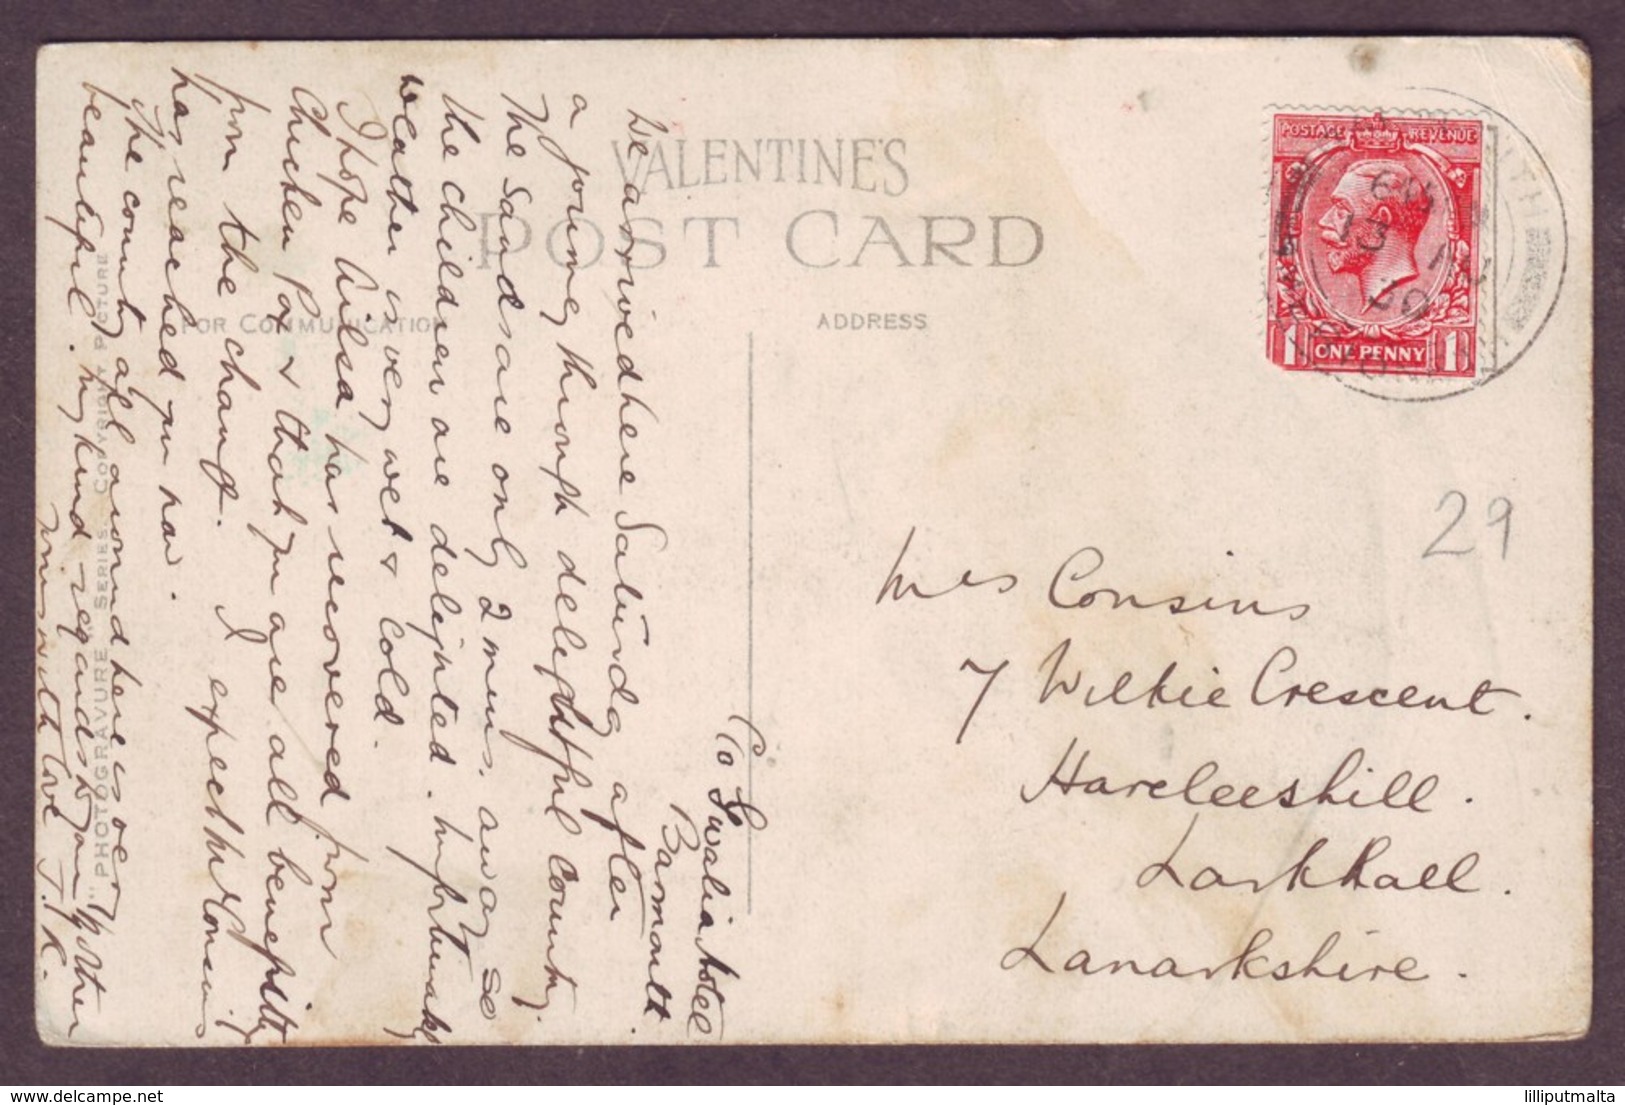 VALENTINE'S
POST CARD
FOR COMMUNICATION
ADDRESS
POSTAGE REVENUE
1 ONE PENNY 1
29
Mrs Cousins
7 Wilkie Crescent.
Hareleeshill.
Larkhall.
Lanarkshire.
C/o Hotel
Barmouth.
We arrived here Saturday after
a journey through delightful country.
The Sands are only 2 mins. away so
the children are delighted. Unfortunately
weather is very wet & cold.
I hope Ailsa has recovered from
Chicken Pox & that you are all benefitting
from the change. I expect Mr Cousins
has reached you now.
The country all around here is very
beautiful. My kind regards to your Mother
yours with love J. R.
"PHOTOGRAVURE" SERIES. COPYRIGHT PICTURE
lilliputmalta